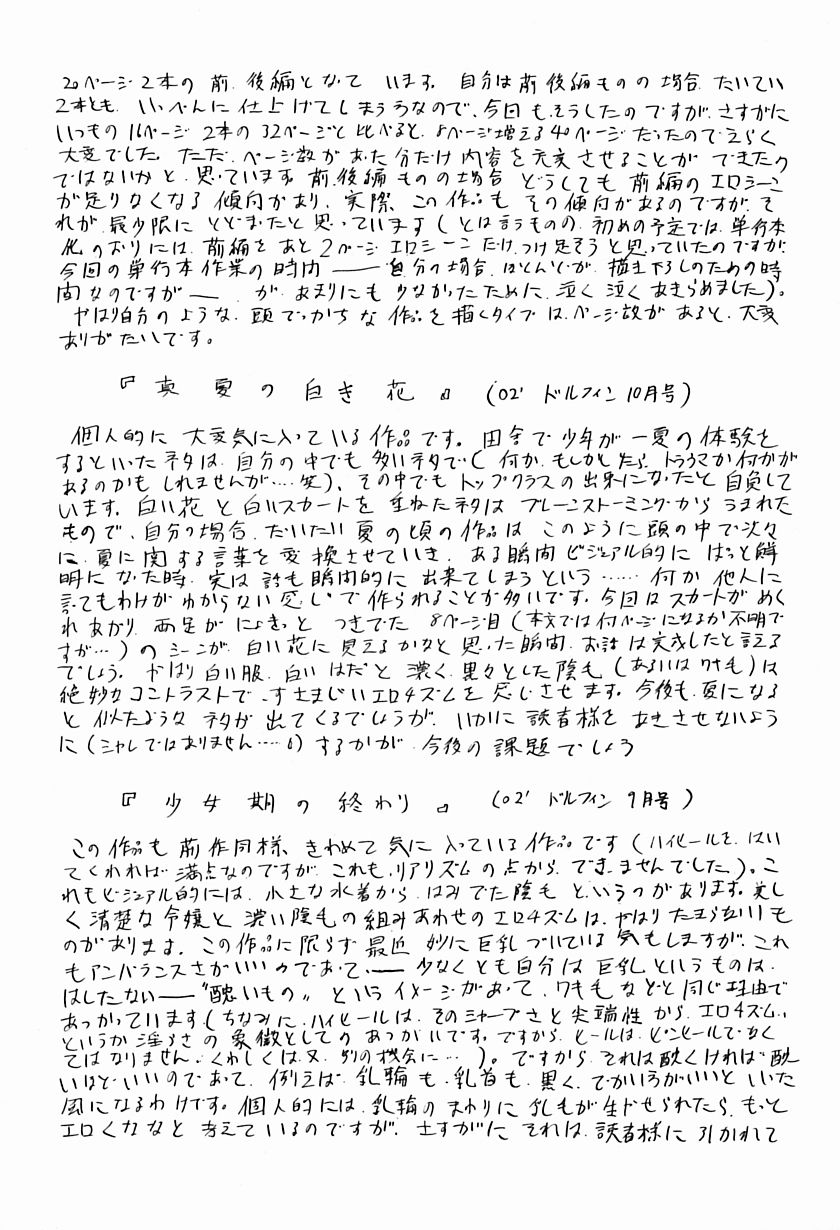 20ページ2本の前、後編となって います。自分は前後編ものの場合、たいてい
2本とも、いっぺんに仕上げてしまううなので、今回も、そうしたのですが、さすがに
いつもの16ページ 2本の32ページと比べると、8ページ増える40ページだったのでえらく
大変でした。ただ、ページ数があった分だけ内容を充実させることができたの
ではないかと、思っています。前、後編ものの場合 どうしても 前編のエロシーン
が足りなくなる傾向があり、実際、この作品も その傾向があるのですが、そ
れが、最少限に とどまったと思っています(とは言うものの、初めの予定では、単行本
化のおりには、前編を あと2ページ エロシーンだけ、つけ足そうと思っていたのですが、
今回の単行本作業の時間――自分の場合、ほとんどが、描き下ろしのための時
間なのですが―― が、あまりにも 少なかったために、泣く泣くあきらめました)。
 やはり自分のような、頭でっかちな 作品を描くタイプは、ページ数が あると、大変
ありがたいです。
『真夏の白き花』(02' ドルフィン10月号)
 個人的に 大変気に入っている作品です。田舎で少年が一夏の体験を
するといったネタは、自分の中でも多いネタで(何か、もしかしたら、トラウマか何かが
あるのかも しれませんが‥‥笑)、その中でも トップクラスの出来になったと自負して
います。白い花と白いスカートを 重ねたネタは ブレーンストーミングから うまれた
もので、自分の場合、だいたい夏の頃の作品は このように頭の中で次々
に、夏に関する言葉を変換させていき、ある瞬間ビジュアル的に はっと解
明になった時、実は話も瞬間的に 出来てしまうという‥‥‥何か 他人に
言ってもわけが わからない感じで作られることが多いです。今回はスカートが めく
れあがり、両足が によきっと つきでた 8ページ目(本文では何ページになるか不明で
すが‥‥)のシーンが、白い花に見えるかなと 思った瞬間、お話は完成したと言える
でしょう。やはり白い服、白い はだと 濃く、黒々とした陰毛(あるいはワキ毛)は
絶妙なコントラストで、すさまじいエロチズムを 感じさせます。今後も、夏になる
と似たような ネタが 出てくるでしょうが、いかに 読者様を あきさせないよう
に(シャレではありません‥‥)するかが 今後の課題でしょう
『少女期の終わり』(02' ドルフィン 9月号)
 この作品も 前作同様、きわめて 気に 入っている作品です(ハイヒールを、はい
てくれれば 満点なのですが、これも、リアリズムの点から、できませんでした)。こ
れもビジュアル的には、小さな水着から、はみでた陰毛 というのがあります。美し
く清楚な令嬢と 濃い陰毛の組みあわせのエロチズムは、やはり たまらないも
のがあります。この作品に限らず最近 妙に巨乳づいている気もしますが、これ
もアンバランスさがいいのであって、――少なくとも自分は 巨乳というものは、
はしたない――“醜いもの”というイメージがあって、ワキ毛などと同じ理由で
あつかっています(ちなみに、ハイヒールは、そのシャープさと尖端性から、エロチズム、
というか淫らさの象徴としての あつかいです。ですから、ヒールは、ピンヒールでなく
てはなりません。くわしくは、又、別の機会に‥‥)。ですから、それは醜くければ醜
いほどいいのであって、例えば、乳輪も、乳首も、黒く、でかいうがいいと いった
風になるわけです。個人的には、乳輪の まわりに 乳毛が生やせられたら、もっと
エロくなると 考えているのですが、さすがに それは、読者様に 引かれて